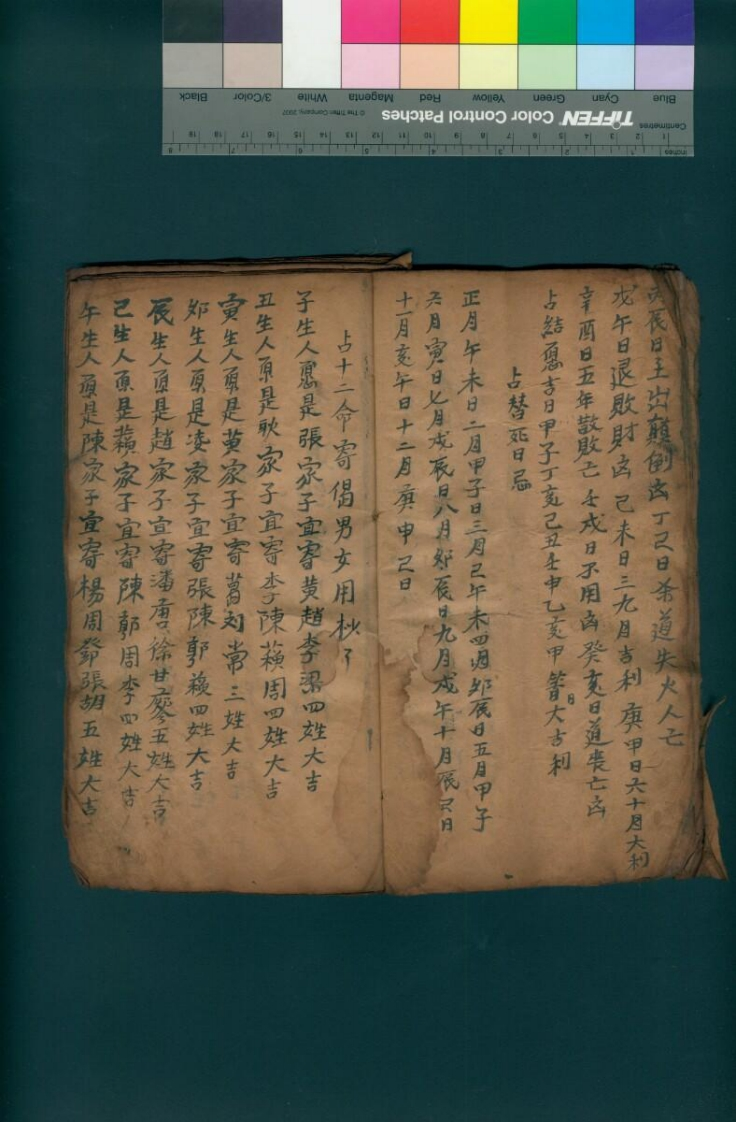 丙辰日主出顛倒凶 丁己日杀道失火人亡
戊午日退敗財凶 己未日三九月吉利 庚甲日六十月大利
辛酉日五年敗亡 壬戌日不用凶 癸亥日道喪亡凶
占結愿吉日甲子丁亥己丑壬申乙亥甲 日大吉利
占替死日忌
正月午未日二月甲子日三月己午未四月卯辰日五月甲子
六月寅日七月戌辰日八月卯辰日九月戌午十月辰己日
十一月亥午日十二月庚申己日
占十二命寄偈男女用杪了
子生人愿是張家子宜寄黄趙李梁四姓大吉
丑生人原是耿家子宜寄李陳蘓周四姓大吉
寅生人原是黄家子宜寄葛刘常三姓大吉
卯生人原是凌家子宜寄張陳郭蘓四姓大吉
辰生人原是趙家子宜寄潘唐徐甘廖五姓大吉
己生人原是蘓家子宜寄陳郭周李四姓大吉
午生人原是陳家子宜寄楊周鄧張胡五姓大吉
Blue Cyan Green Yellow Red Magenta White 3/Color Black
TIFFEN Color Control Patches
© The Tiffen Company, 2007
Centimetres
Inches